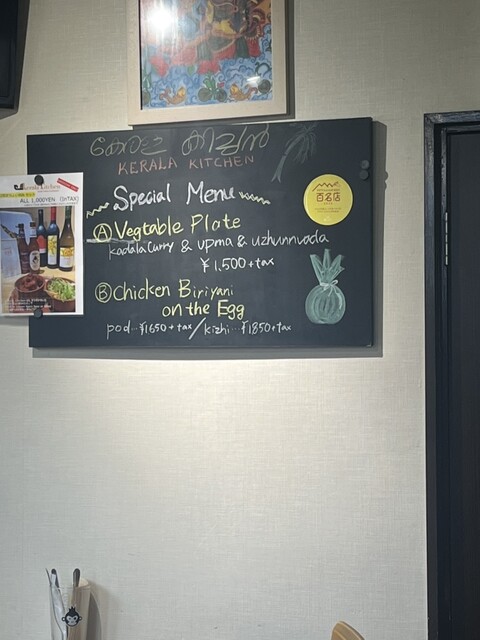 കേരള കിച്ചൻ
KERALA KITCHEN
Special Menu
Ⓐ Vegtable Plate
kadala curry & upma & uzhunnuvada
¥1,500+tax
Ⓑ Chicken Biriyani
on the Egg
pod...¥1650+tax/kizhi...¥1850+tax
百名店
Kerala Kitchen
ALL 1,000YEN (InTAX)